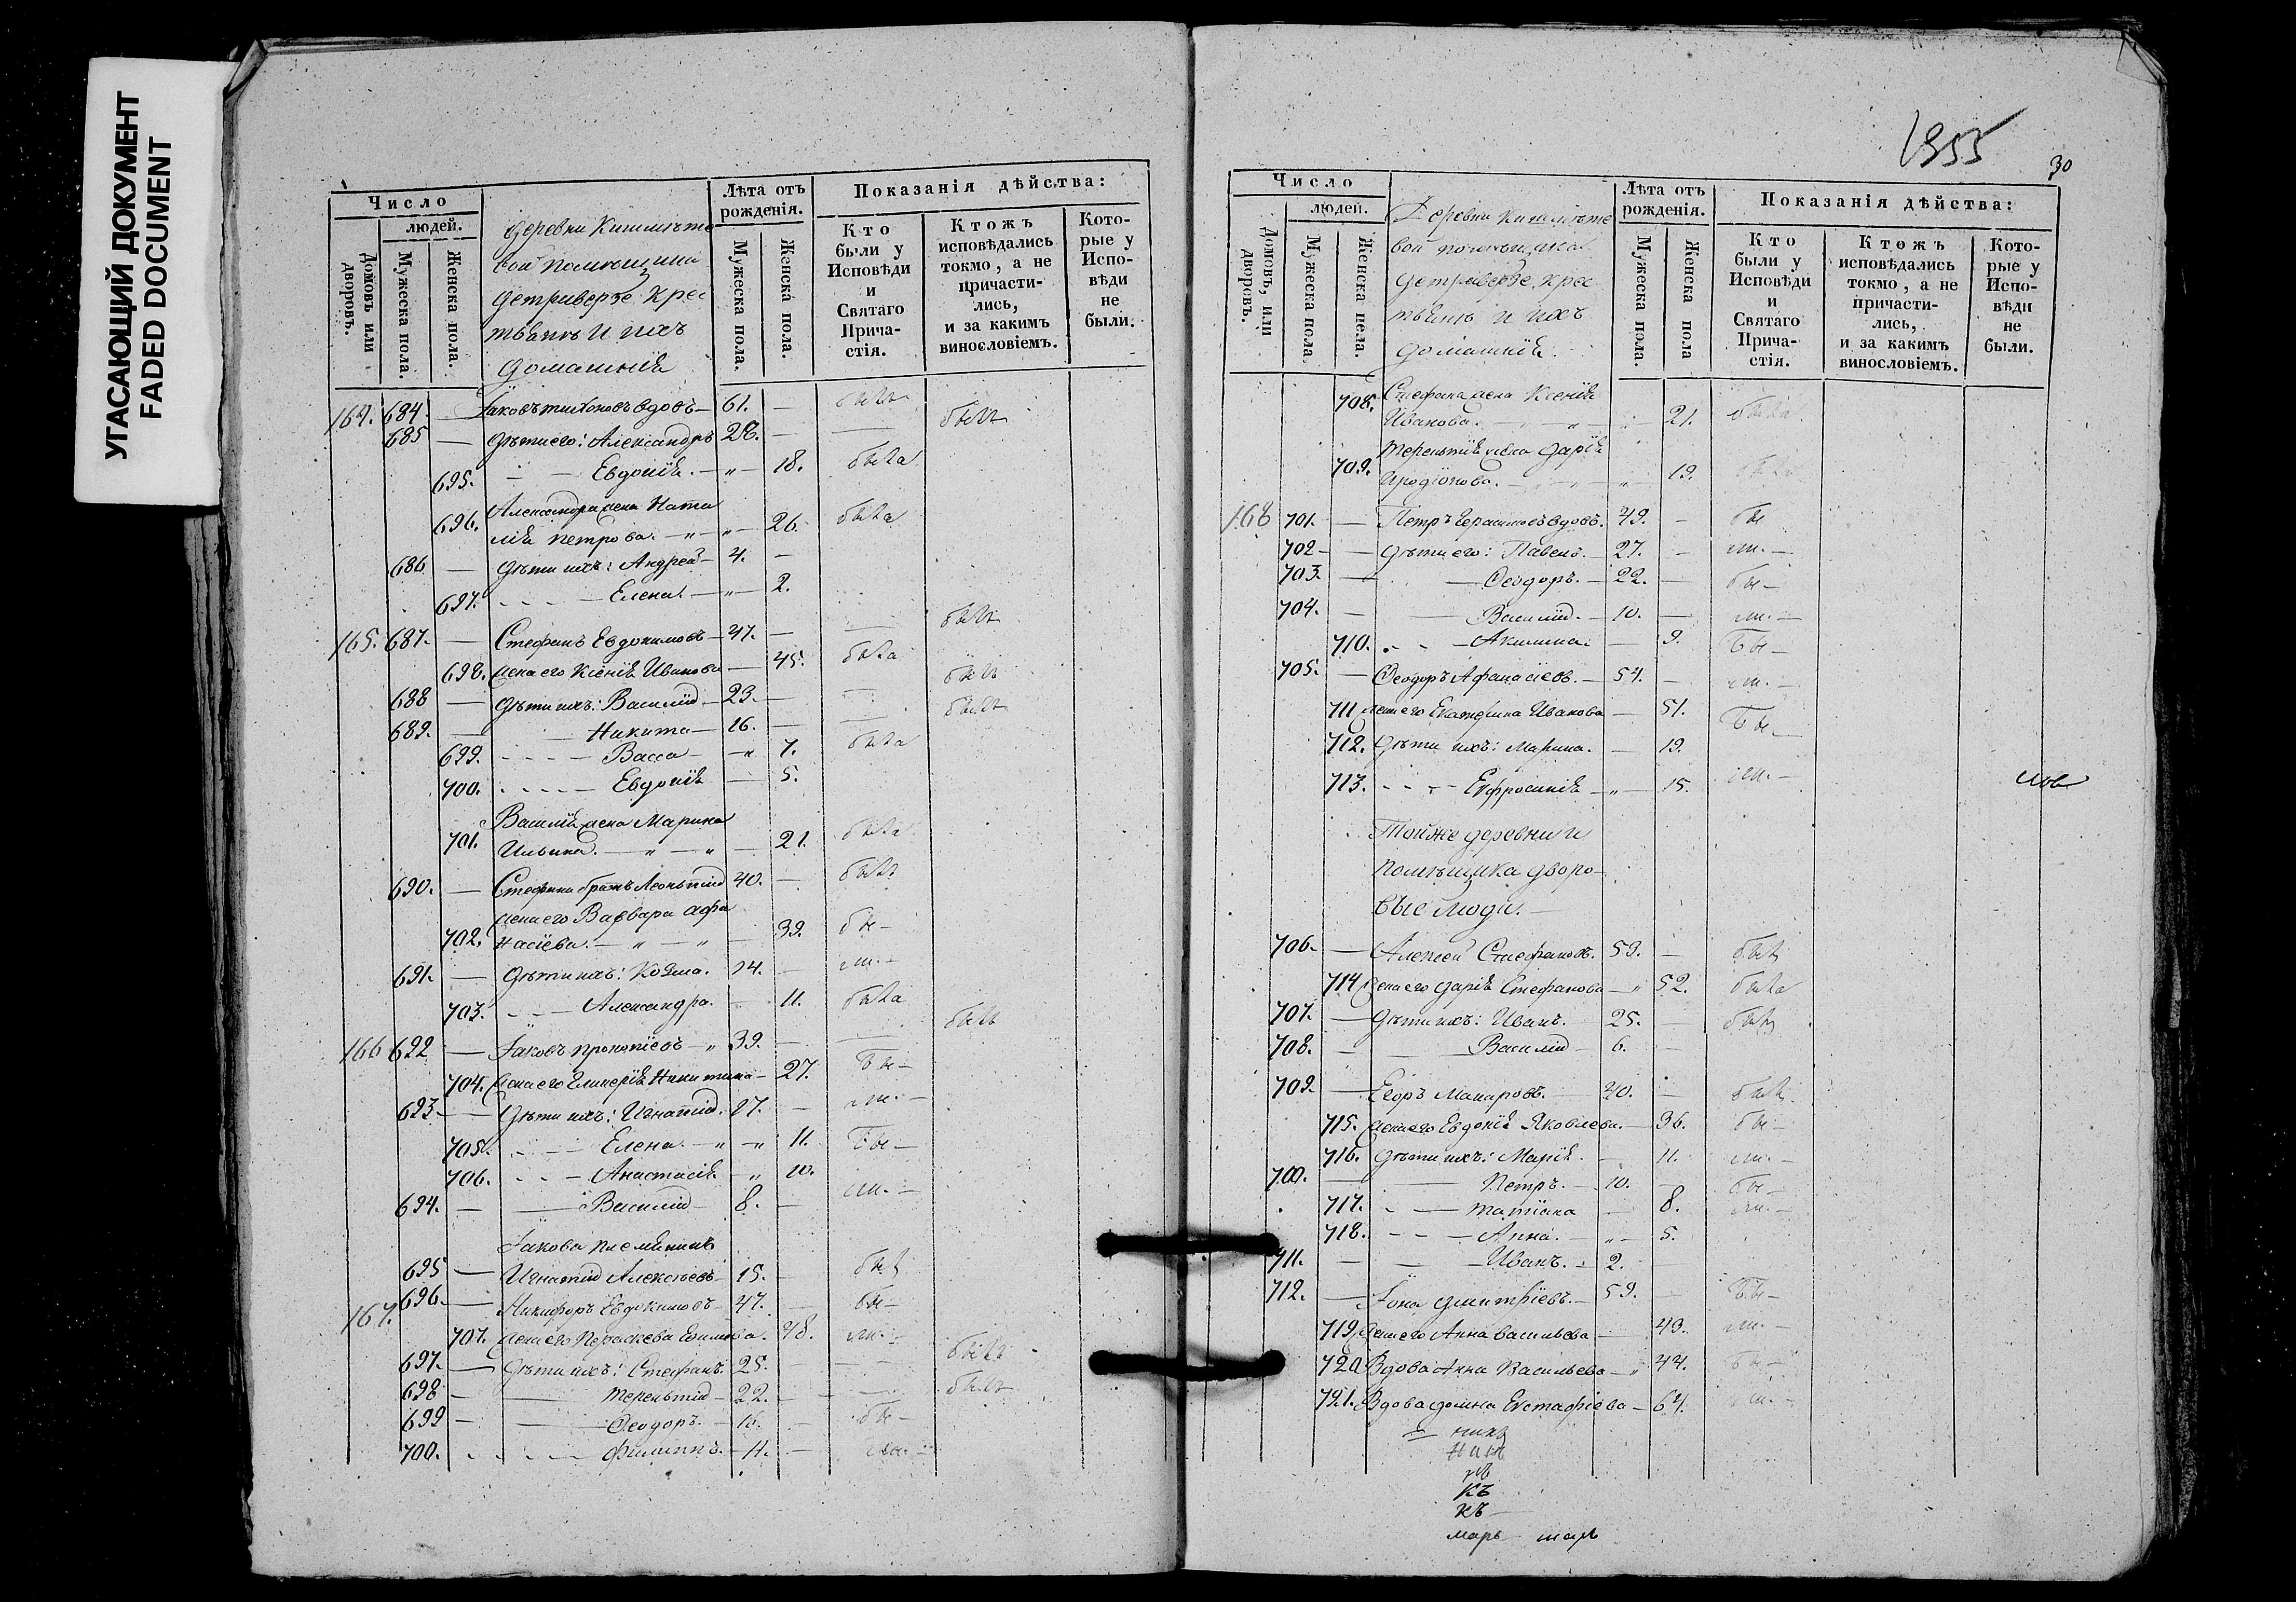 УГАСАЮЩИЙ ДОКУМЕНТ
FADED DOCUMENT
Число
людей.
Домовъ или дворовъ.
Мужеска пола.
Женска пола.
деревни
вой помѣщика
Детриверзе Крес
тьянѣ и ихъ
домашнія
Лѣта отъ рожденія.
Мужеска пола.
Женска пола.
Показанія дѣйства:
Кто были у Исповѣди и Святаго Прича-стія.
Ктожъ исповѣдались токмо, а не причасти-лись, и за какимъ винословіемъ.
Кото-рые у Испо-вѣди не были.
164. 684 — Іаковъ Тихоновъ вдовъ — 61. — былъ
685 — дѣти его: Александръ 28. — былъ
695. — Евдокія. — „ — 18. была
Александра жена Ната
696. лія Петрова. — „ — „ — 26. была
686 — дѣти ихъ: Андрей — 4. —
697. — Елена. — „ — 2.
165. 687. — Стефанъ Евдокимовъ — 47. — былъ
698. жена его Ксенія Иванова — 45. была
688 — дѣти ихъ: Василій — 23. — былъ
689. — Никита — 16. — былъ
699. — Васса — „ 7. была
700. — Евдокія — 5.
Василія жена Марина
701. Ильина. — „ — „ — 21. была
690. — Стефана братъ Леонтій 40. — былъ
жена его Варвара Афа
702. насіева. — „ — „ — 39. бы —
691. — дѣти ихъ: Козма. 14. — ли. —
703. — Александра. — 11. была
166 692 — Іаковъ Прокопіевъ — „ 39. — былъ
704. жена его Гликерія Никитина — 27. бы —
693 — дѣти ихъ: Игнатій. 17. — ли. —
705. — Елена — „ — „ 11. бы —
706. — Анастасія — „ 10.
694. — Василій — 8. — ли. —
Іакова племянникъ
695 — Игнатій Алексѣевъ — 15. — былъ
167. 696. — Никифоръ Евдокимовъ — 47. — бы —
707. жена его Параскева Ефимова. 48. ли. —
697. — дѣти ихъ: Стефанъ. 25. — былъ
698 — Терентій — 22. — былъ
699 — Ѳеодоръ. — 16. — бы —
700. — Филиппъ. — 11. — ли. —
1955
30
Число
людей.
Домовъ, или дворовъ.
Мужеска пола.
Женска пола.
Деревни
вой помѣщика
Детриверзе Крес
тьянѣ и ихъ
домашнія
Лѣта отъ рожденія.
Мужеска пола.
Женска пола
Показанія дѣйства:
Кто были у Исповѣди и Святаго Прича-стія.
Ктожъ исповѣдались токмо, а не причасти-лись, и за какимъ винословіемъ.
Кото-рые у Испо-вѣди не были.
Стефана жена Ксенія
708. Иванова. — „ — „ 21. была
Терентія жена Дарія
709. Иродіонова. — „ — 19. была
168 701. — Петръ Герасимовъ вдовъ. 49. — бы
702 — дѣти его: Павелъ. — 27. — ли. —
703. — Ѳеодоръ. — 22. — бы —
704. — Василій. — 10. — ли. —
710. — Акилина. — 9. бы —
705. — Ѳеодоръ Афанасіевъ. — 54. — ли. —
711 жена его Екатерина Иванова — 51. бы —
712. дѣти ихъ: Марина. — 19.
713. — Ефросинія — „ — 15. ли. —
Тойже деревни и
помѣщика дворо-
вые люди. —
706. — Алексей Стефановъ. 53. — былъ
714 жена его Дарія Стефанова — „ 52. была
707. — дѣти ихъ: Иванъ. 25. — былъ
708. — Василій 6. —
709. — Егоръ Макаровъ. 40. былъ
715. жена его Евдокія Яковлева. — 36. бы —
716. дѣти ихъ: Марія. 11. ли. —
700. — Петръ. — 10. — бы —
717. — Татіана — 8. ли. —
718. — Анна. — „ — 5.
711. — Иванъ. — 2.
712. — Іона Дмитріевъ. — 59. — бы —
719. жена его Анна Васильева — 43. ли. —
720 Вдова Анна Васильева — „ 44. бы —
721. Вдова Домна Евстафіева — 64. ли. —
къ
къ